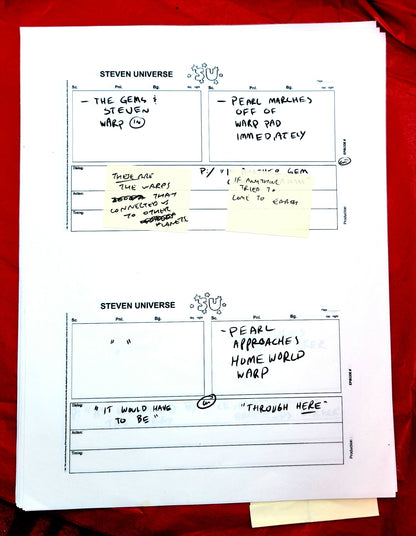 STEVEN UNIVERSE
SU
Sc. Pnl. Bg.
Sc. Pnl. Bg.
- THE GEMS &
STEVEN
WARP IN
- PEARL MARCHES
OFF OF
WARP PAD
IMMEDIATELY
EPISODE #
Dialog:
Action:
Timing:
Production:
THESE ARE
THE WARPS
THAT
CONNECTED US
TO OTHER
PLANETS
P:/ "I GEM
IF ANYTHING
TRIED TO
COME TO EARTH
STEVEN UNIVERSE
SU
Sc. Pnl. Bg.
Sc. Pnl. Bg.
" "
- PEARL
APPROACHES
HOMEWORLD
WARP
EPISODE #
Dialog:
"IT WOULD HAVE
TO BE"
"THROUGH HERE"
Action:
Timing:
Production: